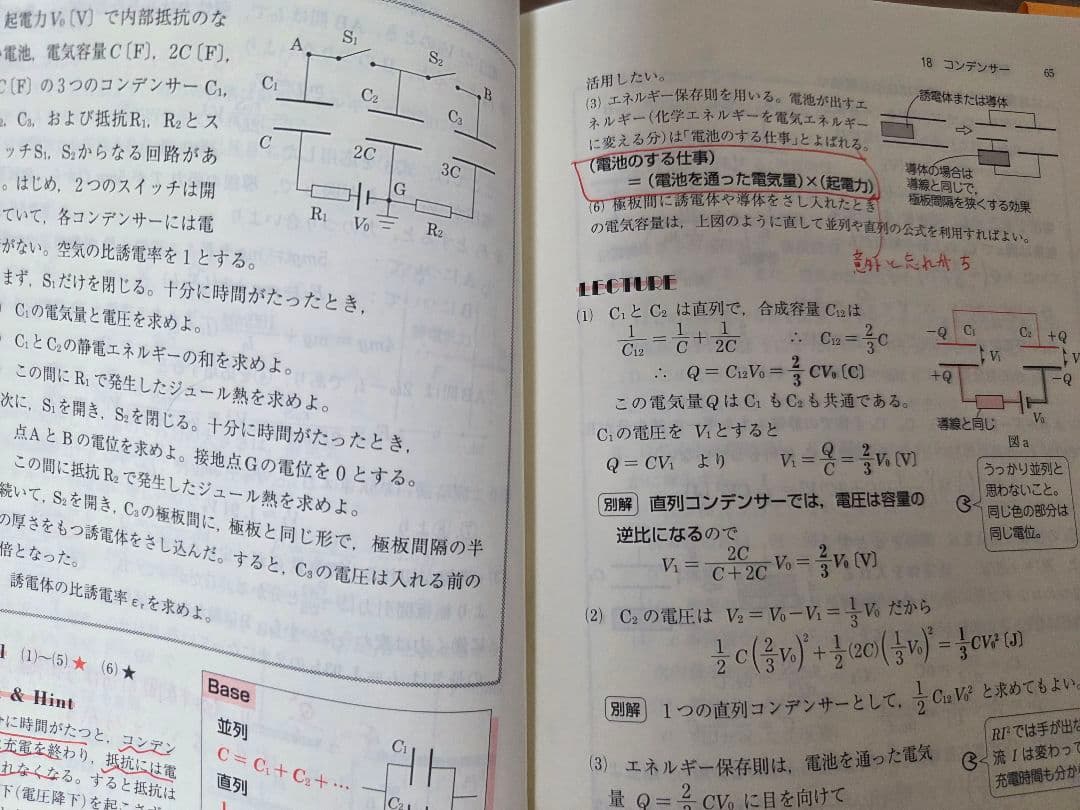 起電力V₀〔V〕で内部抵抗のな
電池，電気容量C〔F〕，2C〔F〕，
C〔F〕の3つのコンデンサーC₁，
C₃，および抵抗R₁，R₂とス
ッチS₁，S₂からなる回路があ
。はじめ，2つのスイッチは開
いていて，各コンデンサーには電
がない。空気の比誘電率を1とする。
まず，S₁だけを閉じる。十分に時間がたったとき，
C₁の電気量と電圧を求めよ。
C₁とC₂の静電エネルギーの和を求めよ。
この間にR₁で発生したジュール熱を求めよ。
次に，S₁を開き，S₂を閉じる。十分に時間がたったとき，
点AとBの電位を求めよ。接地点Gの電位を0とする。
この間に抵抗R₂で発生したジュール熱を求めよ。
続いて，S₂を開き，C₃の極板間に，極板と同じ形で，極板間隔の半
の厚さをもつ誘電体をさし込んだ。すると，C₃の電圧は入れる前の
倍となった。
誘電体の比誘電率εᵣを求めよ。
A
S₁
S₂
B
C₁
C₂
C₃
C
2C
3C
G
R₁
V₀
R₂
(1)～(5)★ (6)★
& Hint
に時間がたつと，コンデン
充電を終わり，抵抗には電
れなくなる。すると抵抗は
下(電圧降下)を起こさず
Base
並列
C = C₁ + C₂ + …
直列
C₁
C₂
18 コンデンサー 65
活用したい。
(3) エネルギー保存則を用いる。電池が出すエ
ネルギー(化学エネルギーを電気エネルギー
に変える分)は「電池のする仕事」とよばれる。
(電池のする仕事)
=(電池を通った電気量)×(起電力)
(6) 極板間に誘電体や導体をさし入れたとき
の電気容量は，上図のように直して並列や直列の公式を利用すればよい。
誘電体または導体
導体の場合は
導線と同じで，
極板間隔を狭くする効果
意外と忘れがち
LECTURE
(1) C₁とC₂は直列で，合成容量C₁₂は
1/C₁₂ = 1/C + 1/2C ∴ C₁₂ = 2/3 C
∴ Q = C₁₂V₀ = 2/3 CV₀〔C〕
この電気量QはC₁もC₂も共通である。
C₁の電圧をV₁とすると
Q = CV₁ より V₁ = Q/C = 2/3 V₀〔V〕
別解 直列コンデンサーでは，電圧は容量の
逆比になるので
V₁ = 2C/(C+2C) V₀ = 2/3 V₀〔V〕
-Q
C₁
C₂
+Q
V₁
+Q
-Q
V₀
導線と同じ
図a
うっかり並列と
思わないこと。
同じ色の部分は
同じ電位。
(2) C₂の電圧は V₂ = V₀ - V₁ = 1/3 V₀ だから
1/2 C(2/3 V₀)² + 1/2 (2C)(1/3 V₀)² = 1/3 CV₀²〔J〕
別解 1つの直列コンデンサーとして，1/2 C₁₂V₀² と求めてもよい。
(3) エネルギー保存則は，電池を通った電気
量 Q = 2/3 CV₀ に目を向けて
RI²では手が出な
流 I は変わって
充電時間も分から